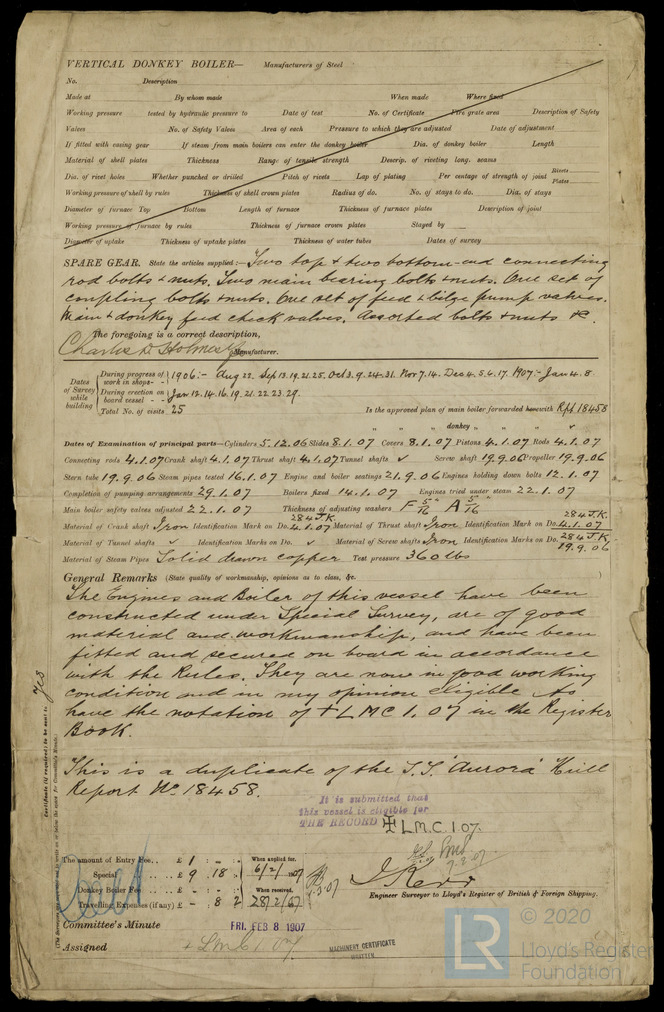 VERTICAL DONKEY BOILER— Manufacturers of Steel
No. Description
Made at By whom made When made Where fixed
Working pressure tested by hydraulic pressure to Date of test No. of Certificate Fire grate area Description of Safety
Valves No. of Safety Valves Area of each Pressure to which they are adjusted Date of adjustment
If fitted with easing gear If steam from main boilers can enter the donkey boiler Dia. of donkey boiler Length
Material of shell plates Thickness Range of tensile strength Descrip. of riveting long. seams
Dia. of rivet holes Whether punched or drilled Pitch of rivets Lap of plating Per centage of strength of joint Rivets Plates
Working pressure of shell by rules Thickness of shell crown plates Radius of do. No. of stays to do. Dia. of stays
Diameter of furnace Top Bottom Length of furnace Thickness of furnace plates Description of joint
Working pressure of furnace by rules Thickness of furnace crown plates Stayed by
Diameter of uptake Thickness of uptake plates Thickness of water tubes Dates of survey
SPARE GEAR. State the articles supplied:— Two top & two bottom-end connecting
rod bolts & nuts. Two main bearing bolts & nuts. One set of
coupling bolts & nuts. One set of feed & bilge pump valves.
Main & donkey feed check valves. Assorted bolts & nuts &c.
The foregoing is a correct description,
Charles D. Holmes Manufacturer.
Dates of Survey while building
During progress of work in shops - - 1906:- Aug 22. Sep 13.19.21.25. Oct 3.9.24.31. Nov 7.14. Dec 4.5.6.17. 1907:- Jan 4.8.
During erection on board vessel - - Jan 12.14.16.19.21.22.23.29
Total No. of visits 25 Is the approved plan of main boiler forwarded herewith Rpt 18458
" " " donkey " " "
Dates of Examination of principal parts—Cylinders 5.12.06 Slides 8.1.07 Covers 8.1.07 Pistons 4.1.07 Rods 4.1.07
Connecting rods 4.1.07 Crank shaft 4.1.07 Thrust shaft 4.1.07 Tunnel shafts ✓ Screw shaft 19.9.06 Propeller 19.9.06
Stern tube 19.9.06 Steam pipes tested 16.1.07 Engine and boiler seatings 21.9.06 Engines holding down bolts 12.1.07
Completion of pumping arrangements 29.1.07 Boilers fixed 14.1.07 Engines tried under steam 22.1.07
Main boiler safety valves adjusted 22.1.07 Thickness of adjusting washers F 5/16" A 5/16"
Material of Crank shaft Iron Identification Mark on Do. 284 J.K. 4.1.07 Material of Thrust shaft Iron Identification Mark on Do. 284 J.K. 4.1.07
Material of Tunnel shafts ✓ Identification Marks on Do. ✓ Material of Screw shafts Iron Identification Marks on Do. 284 J.K. 19.9.06
Material of Steam Pipes Solid drawn copper Test pressure 360 lbs
General Remarks (State quality of workmanship, opinions as to class, &c.
The Engines and Boiler of this vessel have been
constructed under Special Survey, are of good
material and workmanship, and have been
fitted and secured on board in accordance
with the Rules. They are now in good working
condition and in my opinion eligible to
have the notation of + LMC 1.07 in the Register
Book.
This is a duplicate of the S.S. "Aurora" Hull
Report No. 18458.
Certificate (if required) to be sent to Yes
It is submitted that
this vessel is eligible for
THE RECORD + L.M.C. 1 07.
The amount of Entry Fee.. £ 1 : - : - When applied for,
Special £ 9 . 18 : - 6/2/1907
Donkey Boiler Fee £ - : - : When received,
Travelling Expenses (if any) £ - : 8 2 28/2/07
Engineer Surveyor to Lloyd's Register of British & Foreign Shipping.
Committee's Minute FRI. FEB 8 1907
Assigned + LMC 1.07
MACHINERY CERTIFICATE
WRITTEN
LR © 2020
Lloyd's Register
Foundation